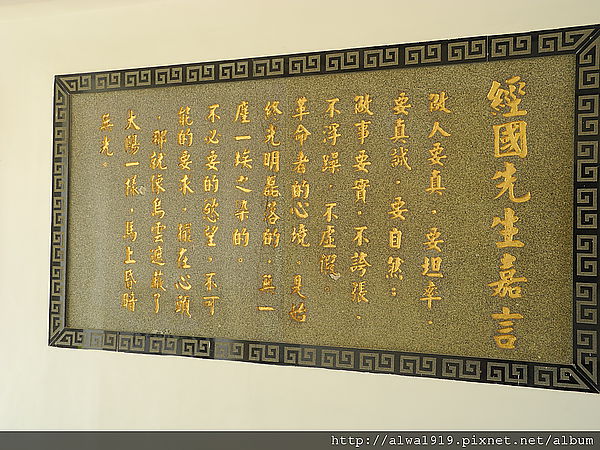 經國先生嘉言
做人要真，要坦率，
要真誠，要自然；
做事要實，不誇張，
不浮躁，不虛假。
革命者的心境，是始
終光明磊落的，無一
塵一埃之染的。
不必要的慾望，不可
能的要求，擺在心頭
，那就像烏雲遮蔽了
太陽一樣，馬上昏暗
無光。
http://alwa1919.pixnet.net/album